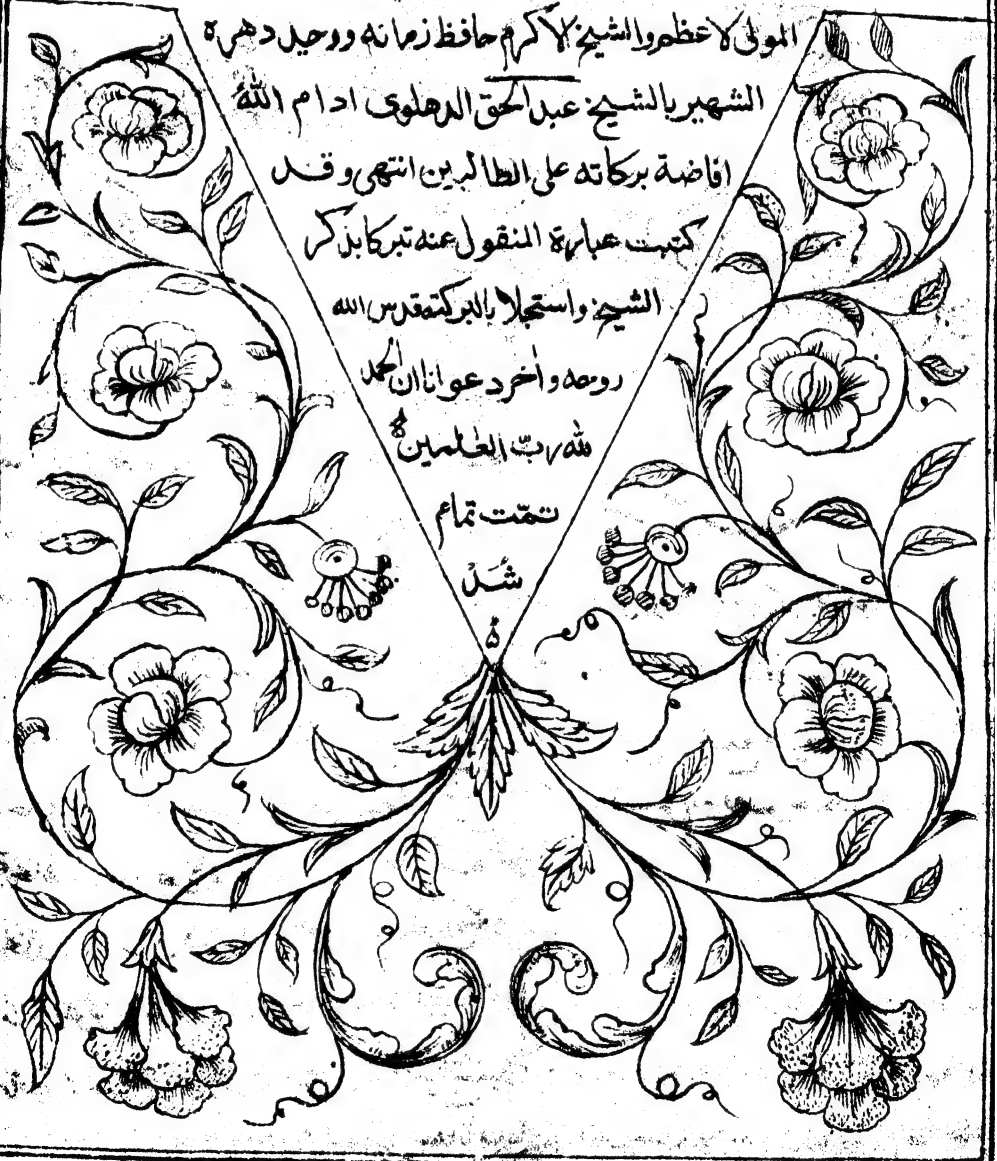 المولى لاعظم والشيخ لاكرم حافظ زمانه ووحيد دهره
الشهير بالشيخ عبدالحق الدهلوى ادام الله
افاضة بركاته على الطالبين انتهى وقد
كتبت عبارة المنقول عنه تبركا بذكر
الشيخ واستجلابا لبركته قدس الله
روحه وأخر دعوانا ان الحمد
لله ربّ العلمين
تمّت تمام
شُدْ